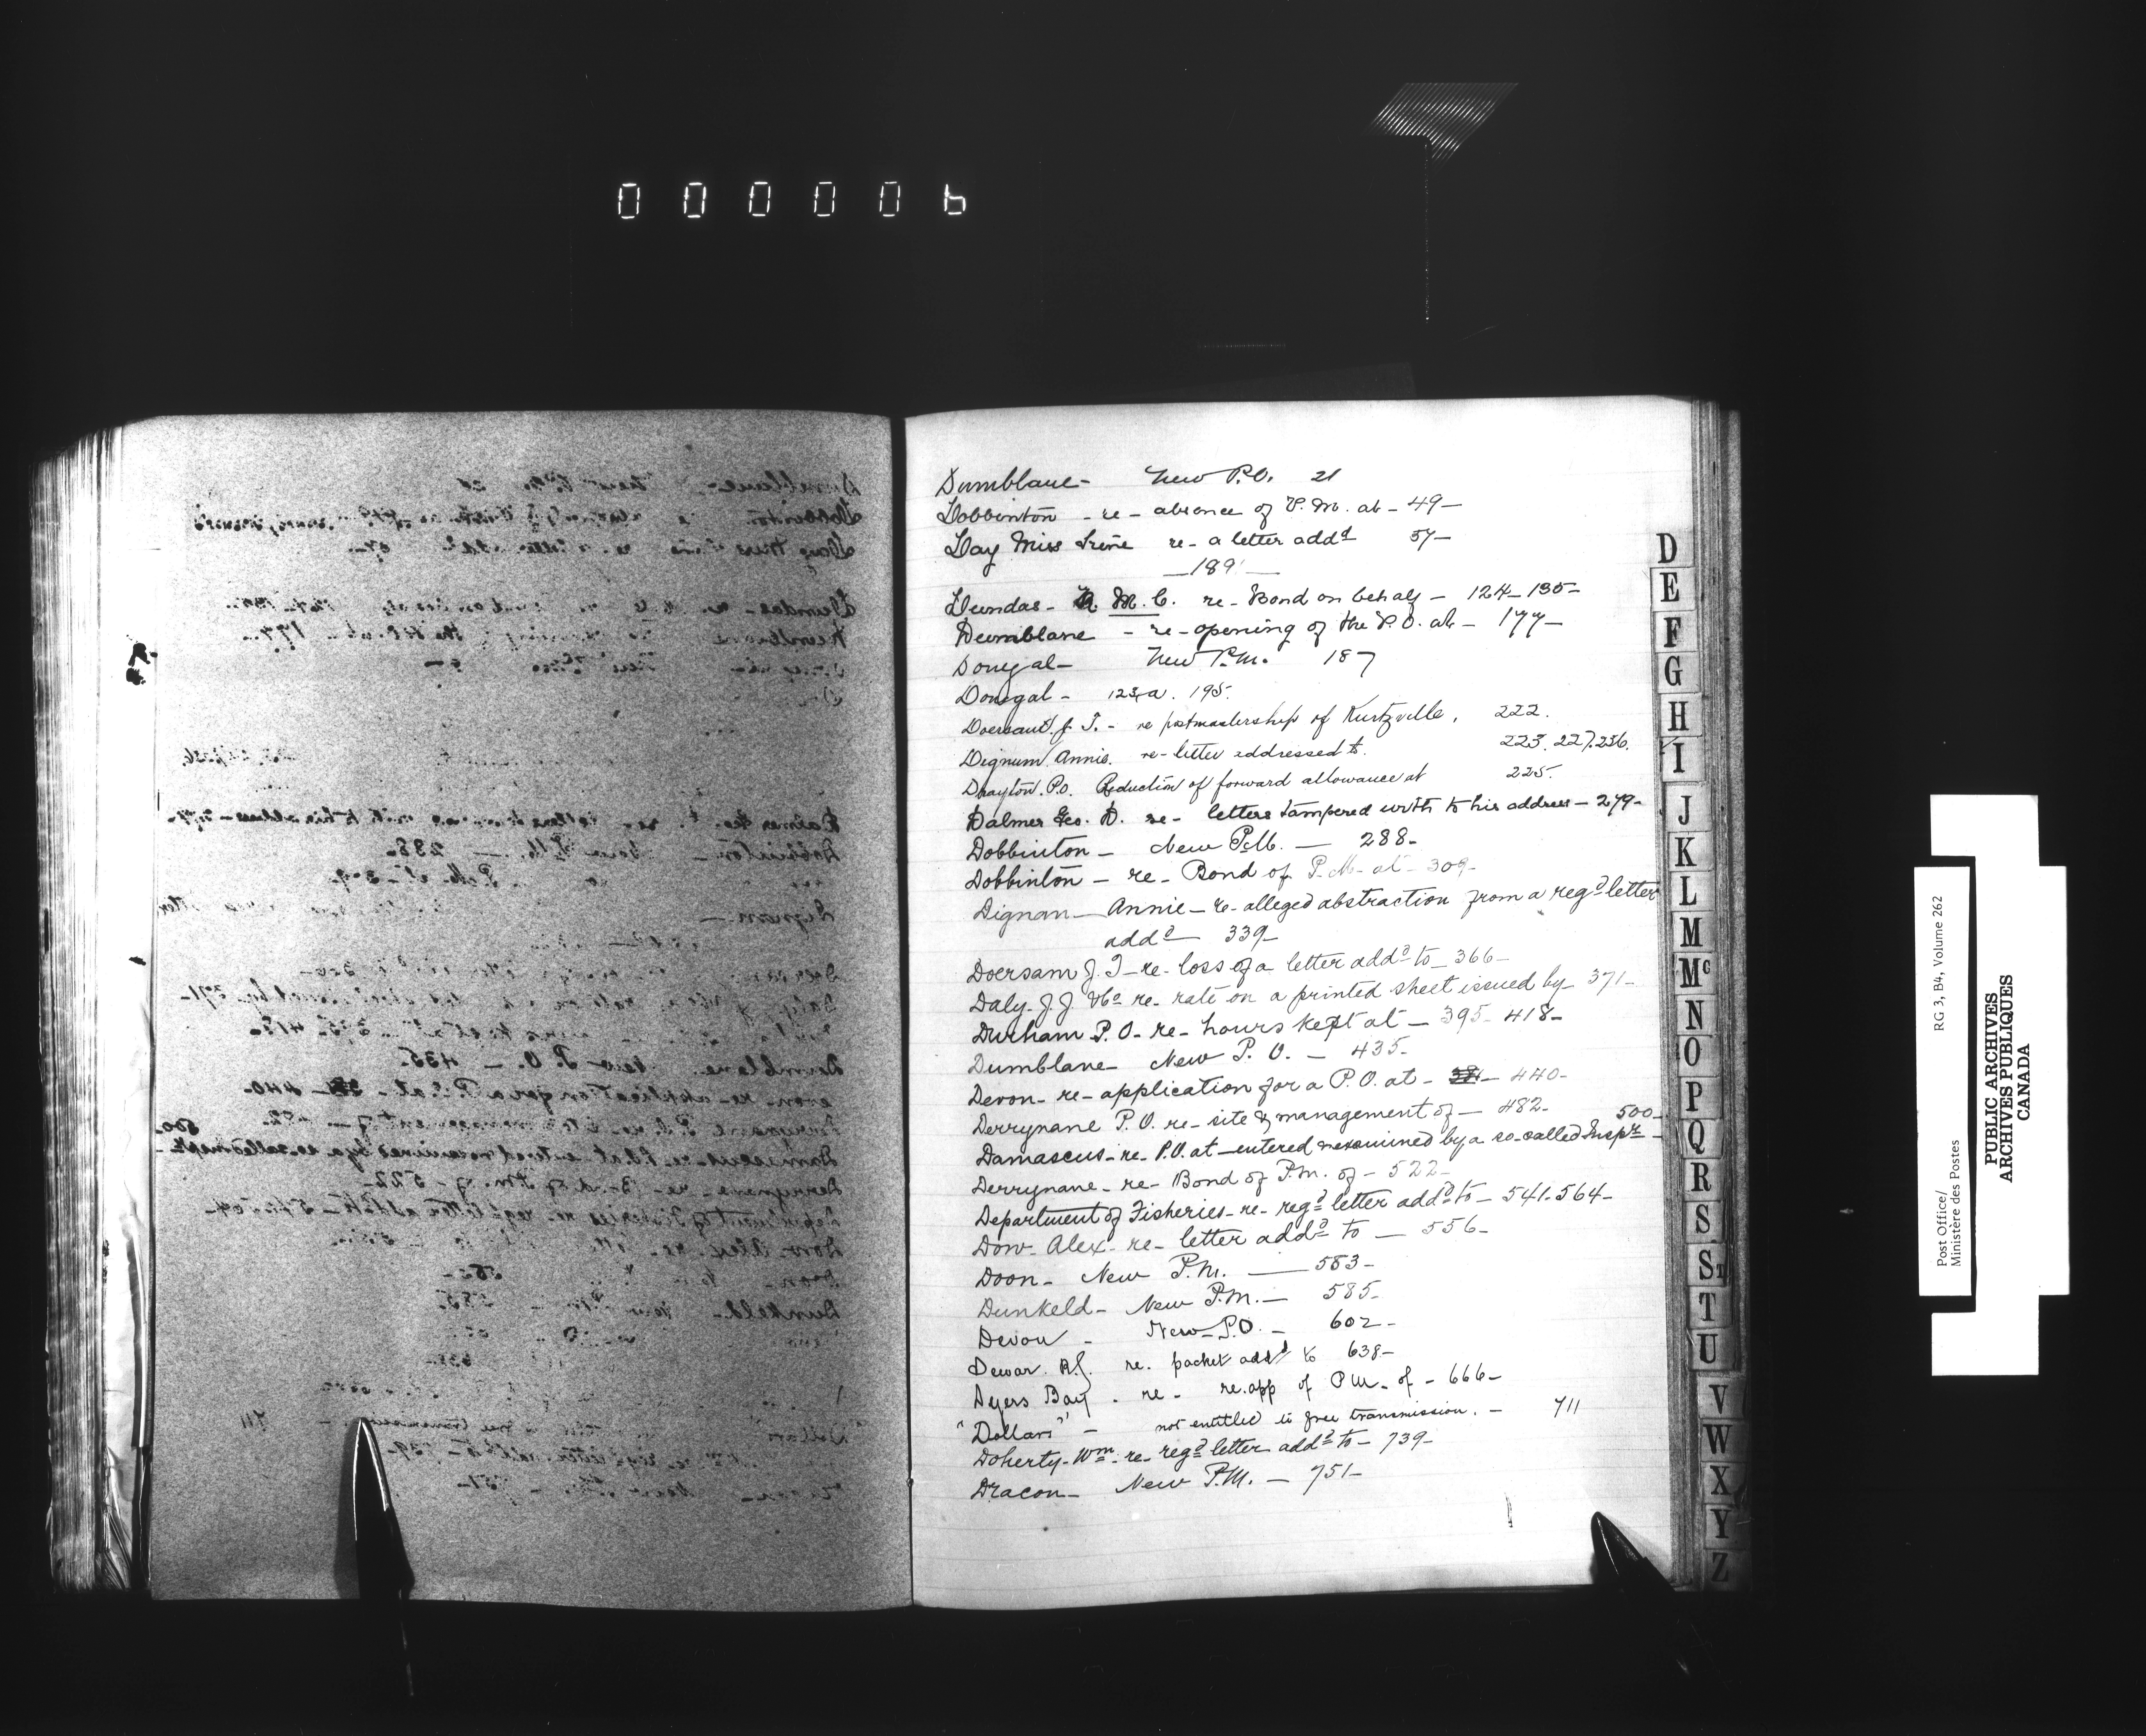 000006
Dumblane - New P.O. 21
Dobbinton - re - absence of P.M. at - 49 -
Day Miss Irene re - a letter addd 57 -
- 189 -
Dundas - M. C. re - Bond on behalf - 124 - 135 -
Dumblane - re - opening of the P.O. at - 177 -
Donegal - New P.M. 187
Donegal - 123,a. 195.
J. T. - re postmastership of Kurtzville, 222.
Dignum, Annie. re - letter addressed to. 223. 227. 236.
Drayton. P.O. Reduction of forward allowance at 225.
Dalmer Geo. D. re - letters tampered with to his address - 279 -
Dobbinton - New P.M. - 288 -
Dobbinton - re - Bond of P.M. at - 309 -
Dignan - Annie - re - alleged abstraction from a regd letter
addd - 339 -
Doersam J. T - re - loss of a letter addd to - 366 -
Daly - J. J & Co re - rate on a printed sheet issued by - 371 -
Durham P.O. - re - hours kept at - 395 - 418 -
Dumblane - New P.O. - 435 -
Devon - re - application for a P.O. at - 440 -
Derrynane P.O. re - site & management of - 482 -
500 -
Damascus - re - P.O. at - entered & examined by a so-called Inspr -
Derrynane - re - Bond of P.M. of - 522 -
Department of Fisheries - re - regd letter addd to - 541 - 564 -
Dow - Alex - re - letter addd to - 556 -
Doon - New P.M. - 583 -
Dunkeld - New P.M. - 585 -
Devon - New P.O. - 602 -
Dewar. re. packet addd to 638 -
Dyers Bay - re - re.app of P.M. of - 666 -
"Dollars" - not entitled to free transmission. - 711
Doherty - Wm - re - regd letter addd to - 739 -
Dracon - New P.M. - 751 -
D
E
F
G
H
I
J
K
L
M
Mc
N
O
P
Q
R
S
St
T
U
V
W
X
Y
Z
Post Office/ RG 3, B4, Volume 262
Ministère des Postes
PUBLIC ARCHIVES
ARCHIVES PUBLIQUES
CANADA